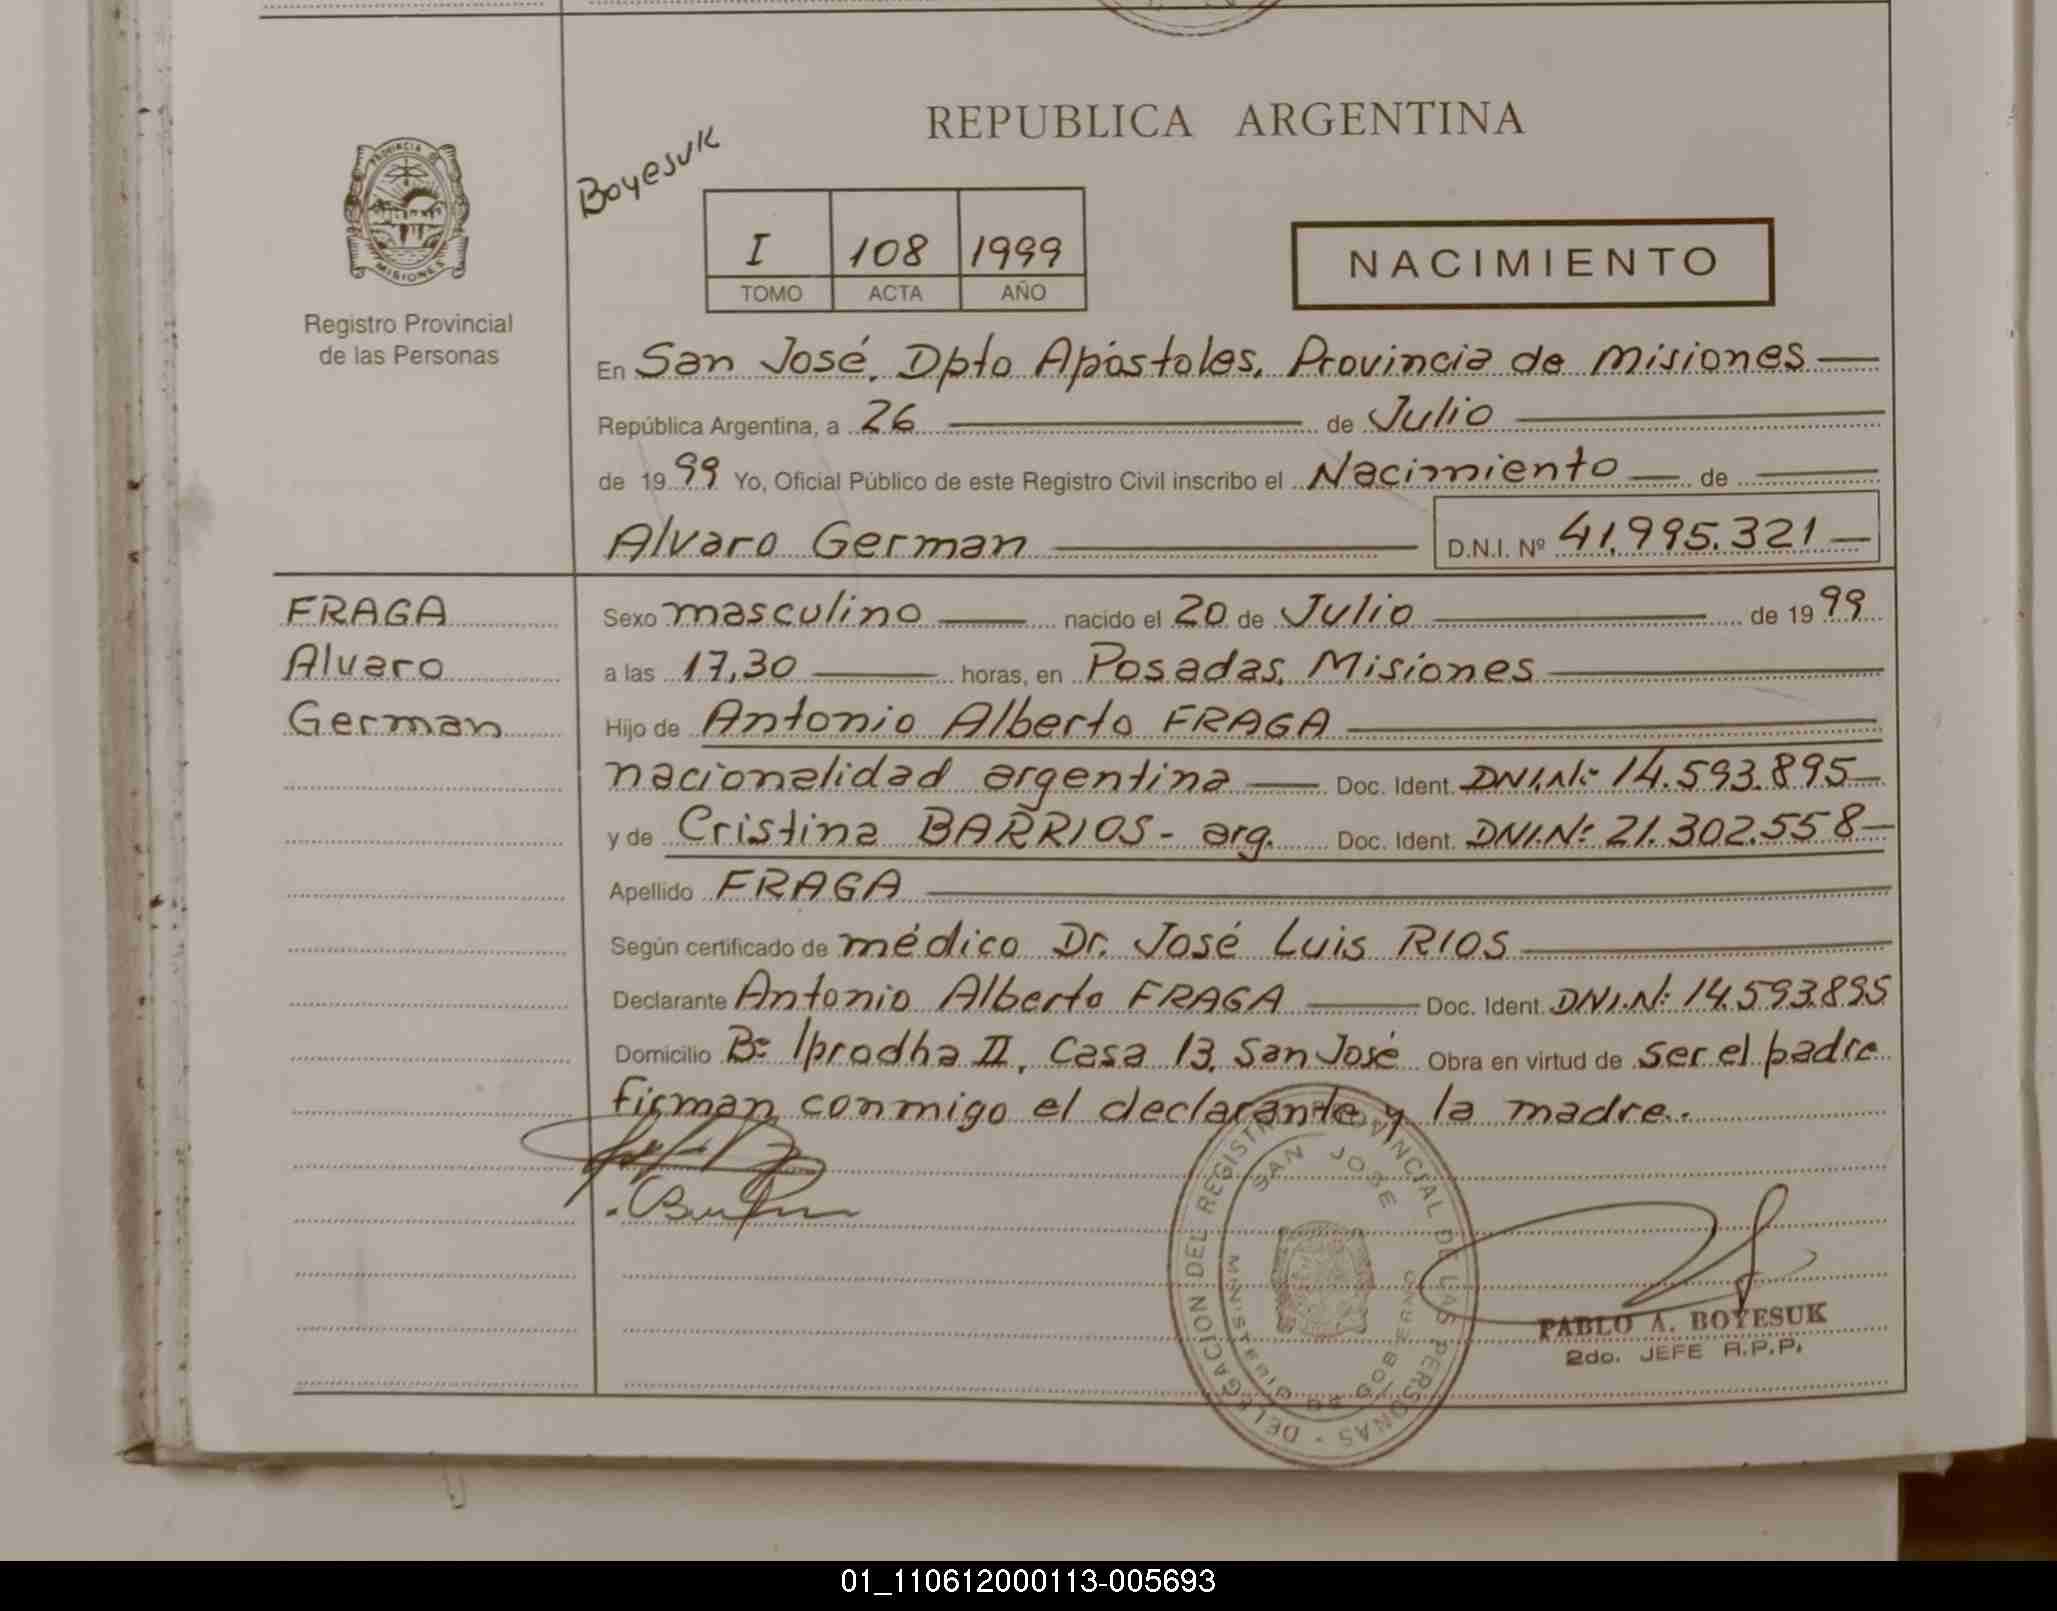 REPUBLICA ARGENTINA
Boyesuk
PROVINCIA DE MISIONES
Registro Provincial
de las Personas
I 108 1999
TOMO ACTA AÑO
NACIMIENTO
En San José, Dpto Apóstoles, Provincia de Misiones
República Argentina, a 26 de Julio
de 1999 Yo, Oficial Público de este Registro Civil inscribo el Nacimiento de
Alvaro German D.N.I. Nº 41.995.321
FRAGA
Alvaro
German
Sexo masculino nacido el 20 de Julio de 1999
a las 17,30 horas, en Posadas, Misiones
Hijo de Antonio Alberto FRAGA
nacionalidad argentina Doc. Ident. DNI.Nº 14.593.895
y de Cristina BARRIOS - arg. Doc. Ident. DNI.Nº 21.302.558
Apellido FRAGA
Según certificado de médico Dr. José Luis RIOS
Declarante Antonio Alberto FRAGA Doc. Ident. DNI.Nº 14.593.895
Domicilio Bº Iprodha II, Casa 13, San José Obra en virtud de ser el padre
firman conmigo el declarante y la madre.
DELEGACION DEL REGISTRO PROVINCIAL DE LAS PERSONAS -
SAN JOSE
MINISTERIO DE GOBIERNO
PABLO A. BOYESUK
2do. JEFE R.P.P.
01_110612000113-005693